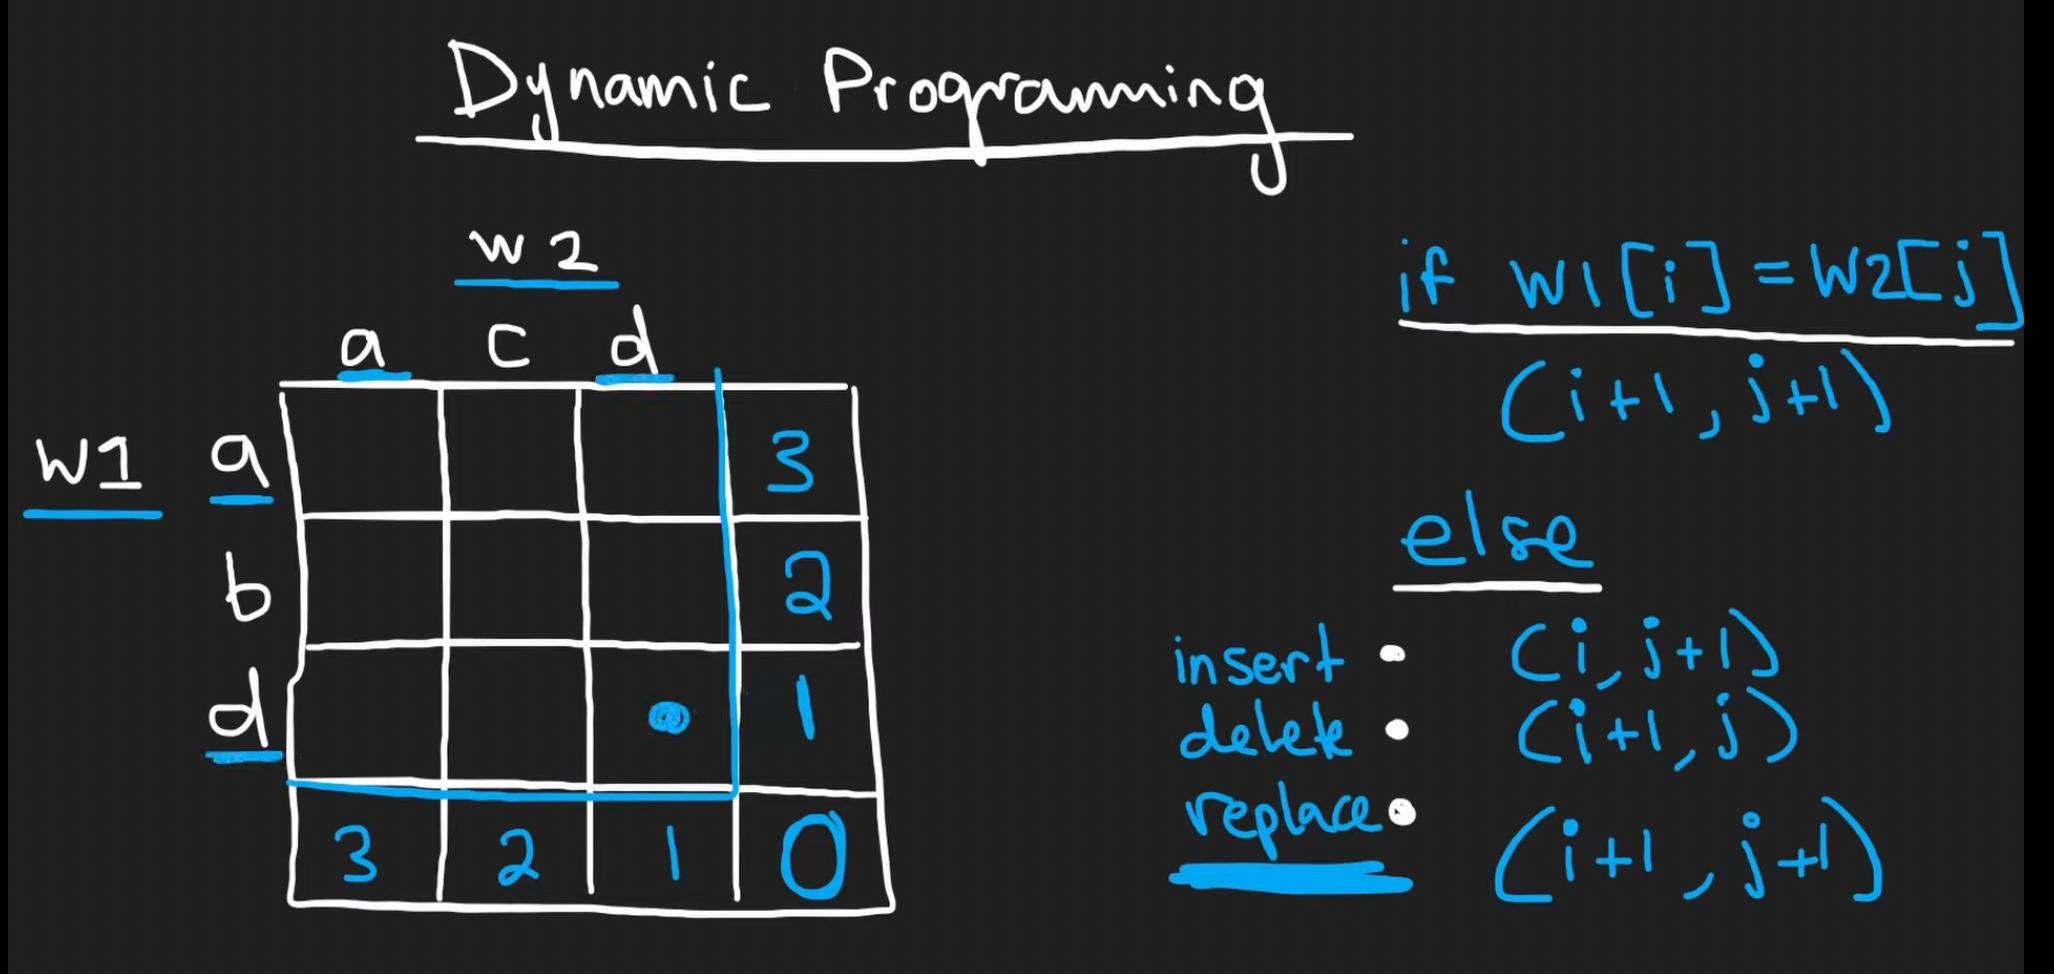 Dynamic Programming
w2
a c d
w1 a 3
b 2
d 1
3 2 1 0
if W1[i]=W2[j]
(i+1, j+1)
else
insert • (i, j+1)
delete • (i+1, j)
replace • (i+1, j+1)